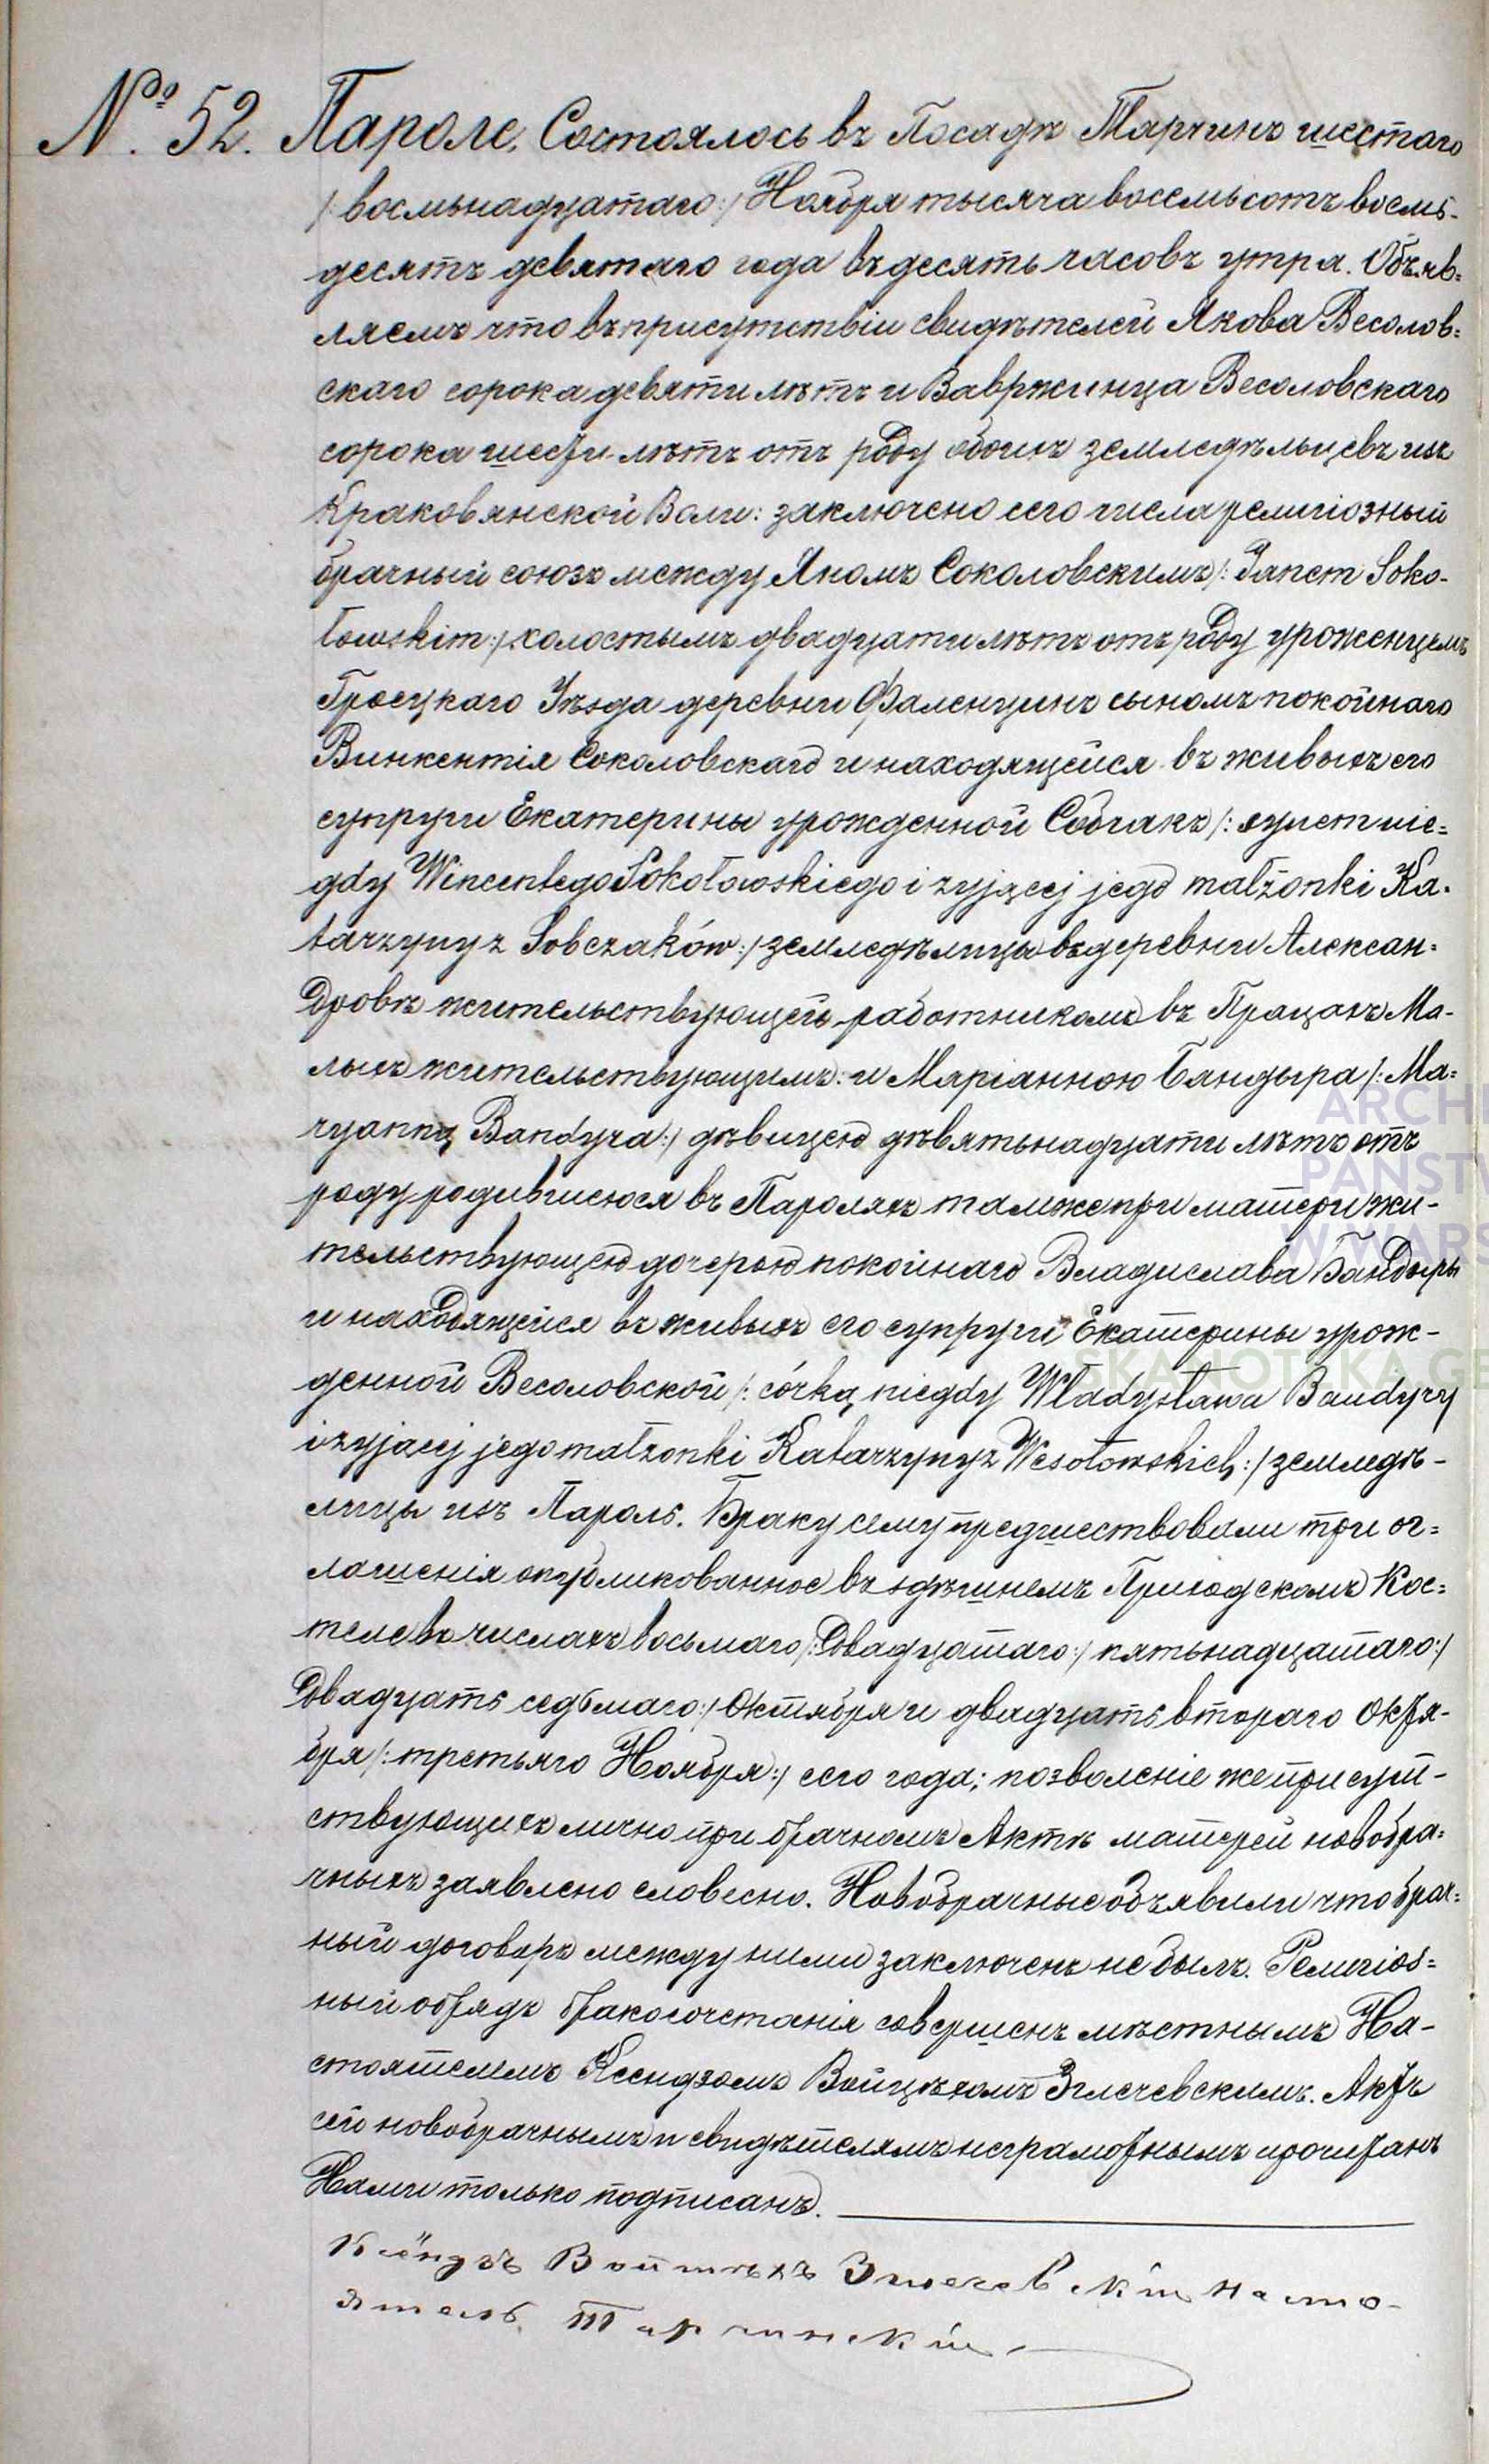 № 52. Пароле. Состоялось въ Посадѣ Тарчинѣ шестаго
/:восмьнадцатаго:/ Ноября тысяча восемьсотъ восмь-
десятъ девятаго года въ десять часовъ утра. Объяв=
ляемъ что въ присутствіи свидѣтелей Якова Весолов=
скаго сорока девяти лѣтъ и Вавржинца Весоловскаго
сорока шести лѣтъ отъ роду обоихъ земледѣльцевъ изъ
Краковянской Воли: заключено сего числа религіозный
брачный союзъ между Яномъ Соколовскимъ /:Janem Soko-
łowskim:/ холостымъ двадцати лѣтъ отъ роду уроженцемъ
Гроецкаго Уѣзда деревни Фаленцинъ сыномъ покойнаго
Винкентія Соколовскаго и находящейся въ живыхъ его
супруги Екатерины урожденной Собчакъ /: synem nie=
gdy Wincentego Sokołowskiego i żyjącej jego małżonki Ka-
tarzyny z Sobczaków:/ земледѣлицы въ деревни Алексан=
дровѣ жительствующей работникомъ въ Працахъ Ма-
лыхъ жительствующимъ: и Маріанною Бандыра /:Ma=
ryanną Bandyra:/ дѣвицею дѣвятьнадцати лѣтъ отъ
роду родившеюся въ Пароляхъ тамже при матери жи-
тельствующею дочерью покойнаго Владислава Бандыры
и находящейся въ живыхъ его супруги Екатерины урож-
денной Весоловской /: córką niegdy Władysława Bandyry
i żyjącej jego małżonki Katarzyny z Wesołowskich:/ земледѣ-
лицы изъ Пароль. Браку сему предшествовали три ог=
лашенія опубликованное въ здѣшнемъ Приходскомъ Кос=
телѣ въ числахъ восьмаго /:двадцатаго:/ пятьнадцатаго:/
двадцать седьмаго:/ Октября и двадцать втораго Октя-
бря /:третьяго Ноября:/ сего года; позволеніе же присут-
ствующихъ лично при брачномъ Актѣ матерей новобра=
чныхъ заявлено словесно. Новобрачные объявили что брач=
ный договоръ между ними заключенъ не былъ. Религіоз=
ный обрядъ бракосочетанія совершенъ мѣстнымъ На-
стоятелемъ Ксендзомъ Войцѣхомъ Зглечевскимъ. Актъ
сей новобрачнымъ и свидѣтелямъ неграмотнымъ прочитанъ
Нами только подписанъ.
Ксёндзъ Войцѣхъ Зглечевскій Насто-
ятель Тарчинскій
ARCHI
PAŃSTW
W WARS
SKANOTEKA.GE